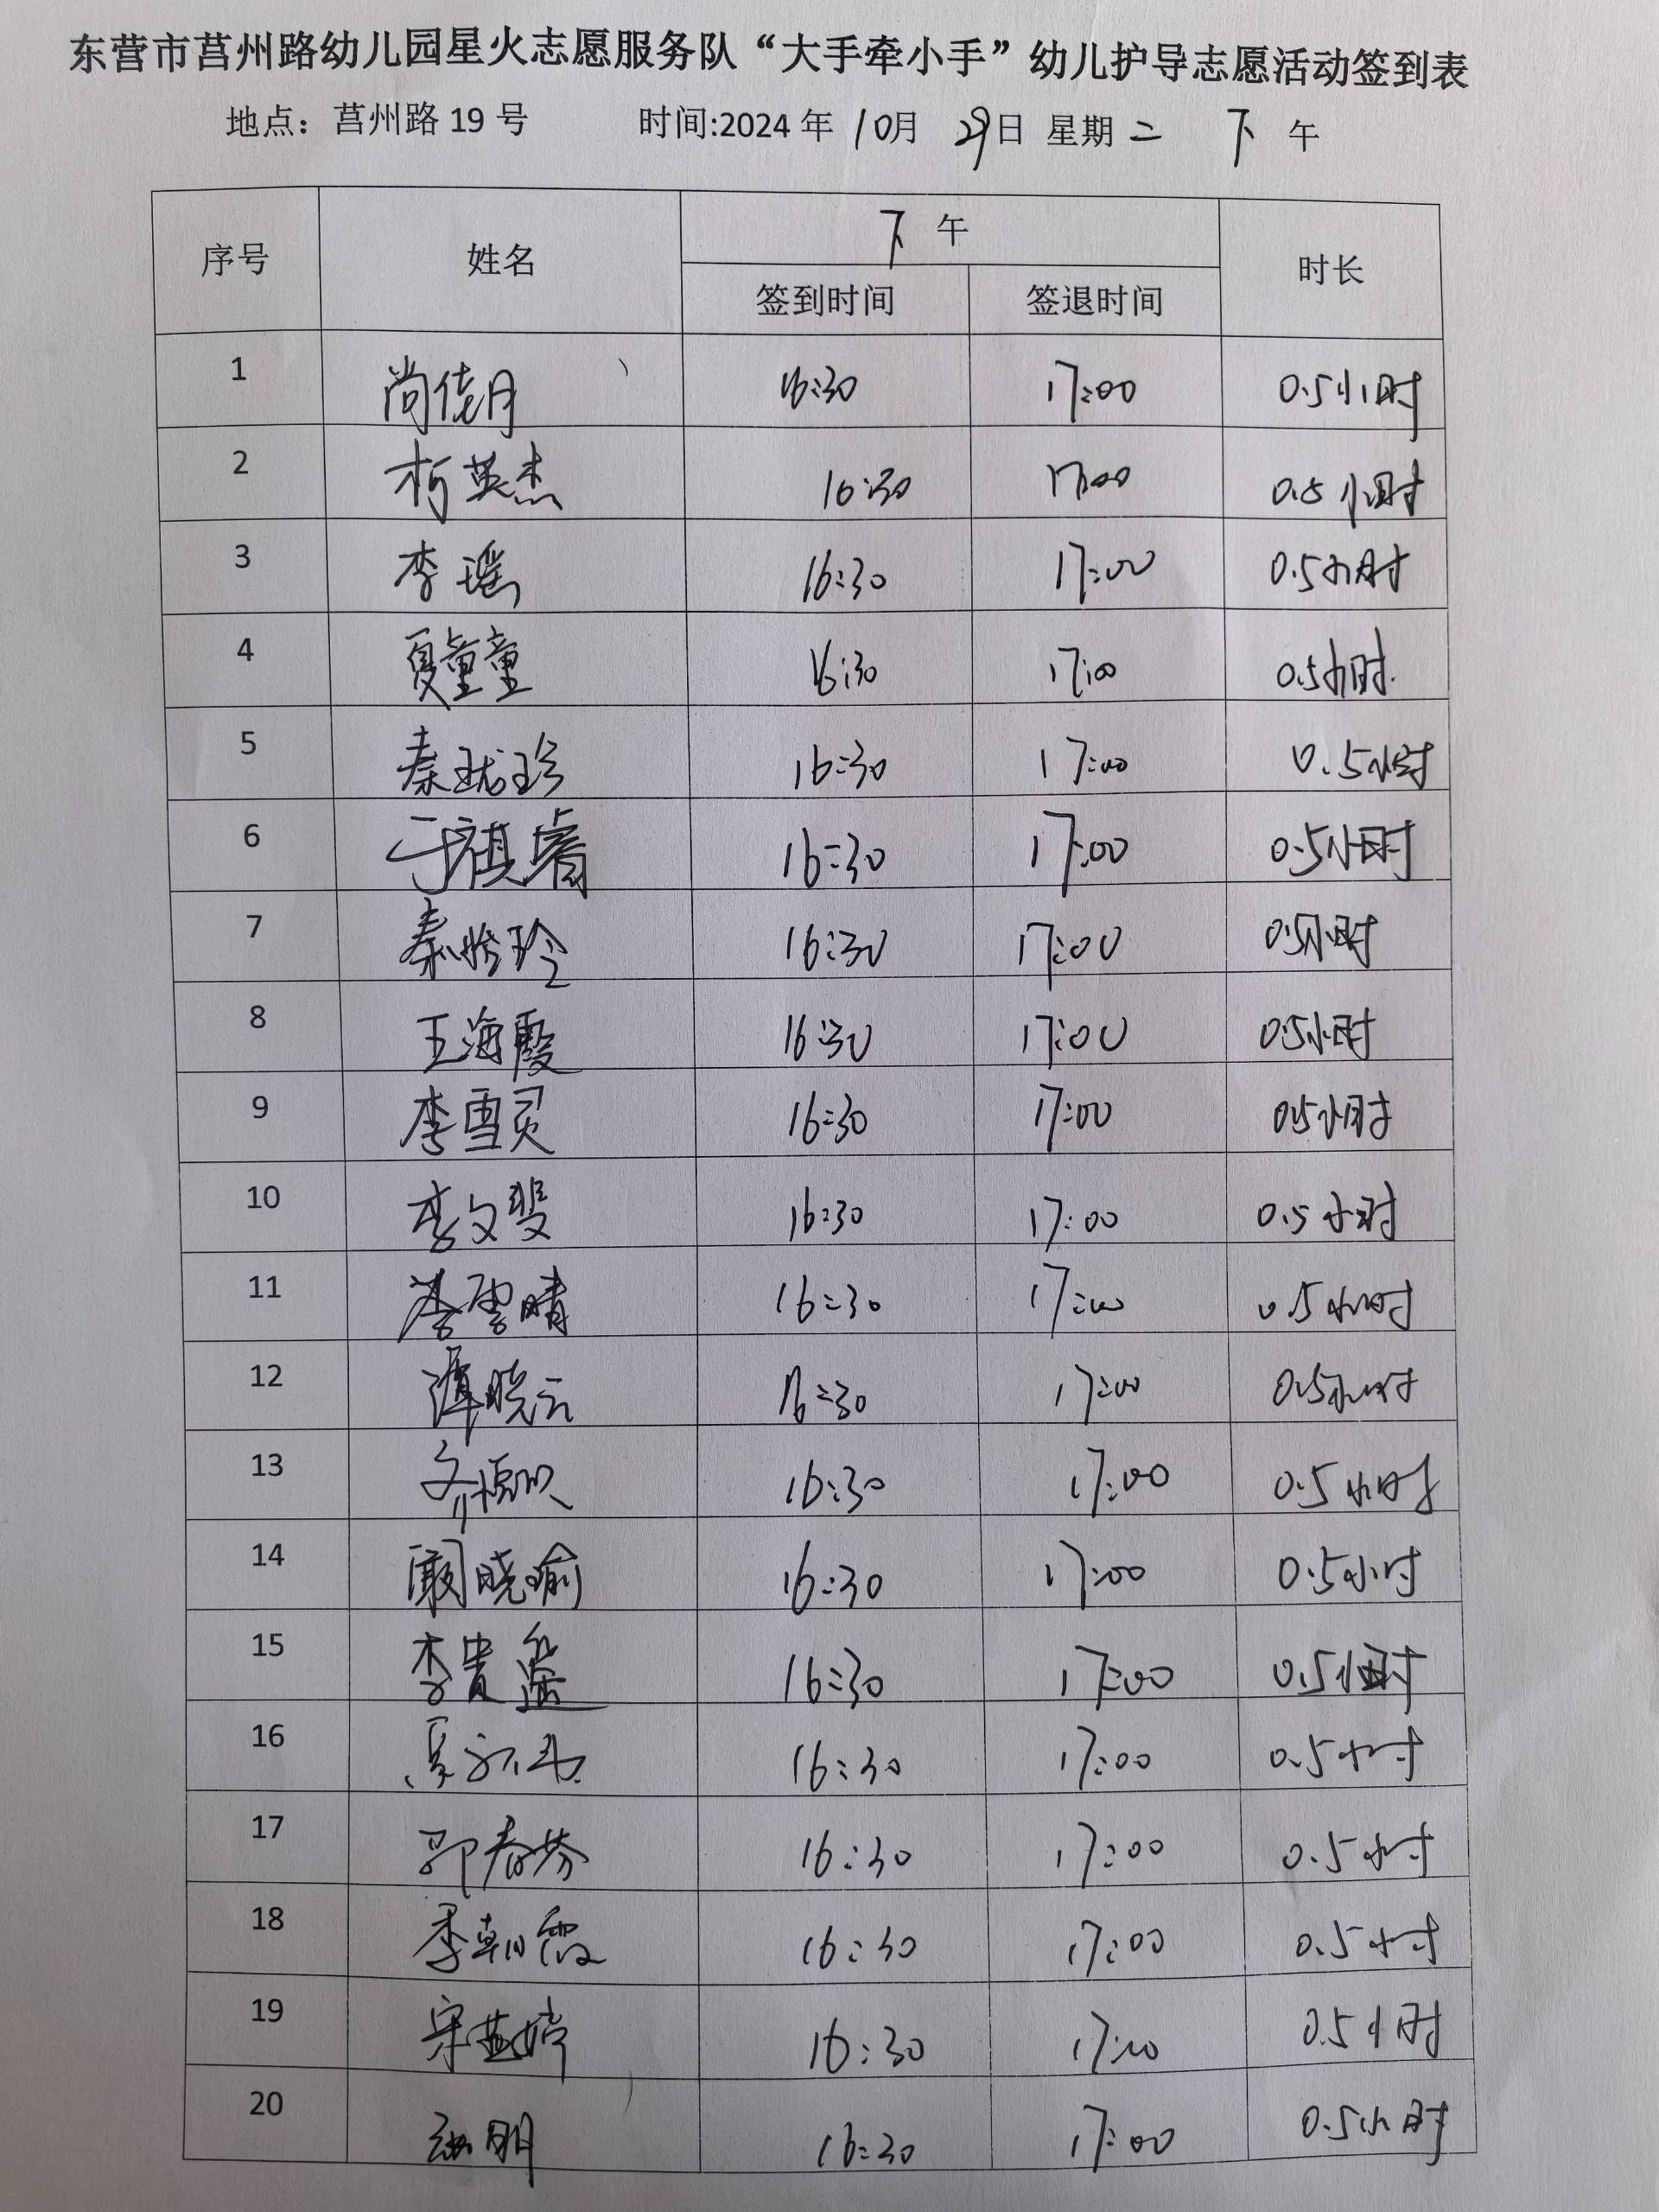 东营市莒州路幼儿园星火志愿服务队“大手牵小手”幼儿护导志愿活动签到表
地点：莒州路 19 号 时间:2024 年 10月 29日 星期 二 下 午
序号 姓名 下 午 时长
签到时间 签退时间
1 尚佳月 16:30 17:00 0.5小时
2 柯英杰 16:30 17:00 0.5小时
3 李瑶 16:30 17:00 0.5小时
4 夏童童 16:30 17:00 0.5小时
5 秦珑珍 16:30 17:00 0.5小时
6 于祺睿 16:30 17:00 0.5小时
7 秦 玲 16:30 17:00 0.5小时
8 王海霞 16:30 17:00 0.5小时
9 李雪灵 16:30 17:00 0.5小时
10 李文斐 16:30 17:00 0.5小时
11 李雪晴 16:30 17:00 0.5小时
12 谭晓云 16:30 17:00 0.5小时
13 齐 16:30 17:00 0.5小时
14 阚晓瑜 16:30 17:00 0.5小时
15 李贵 16:30 17:00 0.5小时
16 16:30 17:00 0.5小时
17 春芬 16:30 17:00 0.5小时
18 季朝霞 16:30 17:00 0.5小时
19 宋燕婷 16:30 17:00 0.5小时
20 明 16:30 17:00 0.5小时